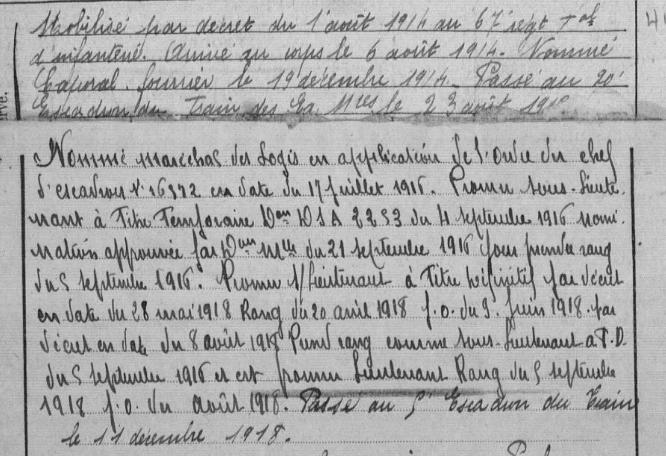 Mobilisé par décret du 1 août 1914 au 67e régt
d'infanterie. Arrivé au corps le 6 août 1914. Nommé
Caporal fourrier le 19 décembre 1914. Passé au 20e
Escadron du Train des Eq. Mres le 23 août
Nommé marechal des Logis en application de l'ordre du chef
d'escadron N° 16372 en date du 17 juillet 1916. Promu sous-lieute
nant à Titre Temporaire Don DSA 2233 du 4 septembre 1916 nomi
nation approuvée par Don Mlle du 21 septembre 1916 pour prendre rang
du 5 septembre 1916. Promu s/lieutenant à Titre Définitif par décret
en date du 28 mai 1918 Rang du 20 avril 1918 J.O. du 3 Juin 1918. par
décret en date du 8 août 1918 Prend rang comme sous-lieutenant à T.D.
du 5 septembre 1916 et est promu Lieutenant Rang du 5 septembre
1918 J.O. du août 1918. Passé au 5e Escadron du Train
le 11 décembre 1918.